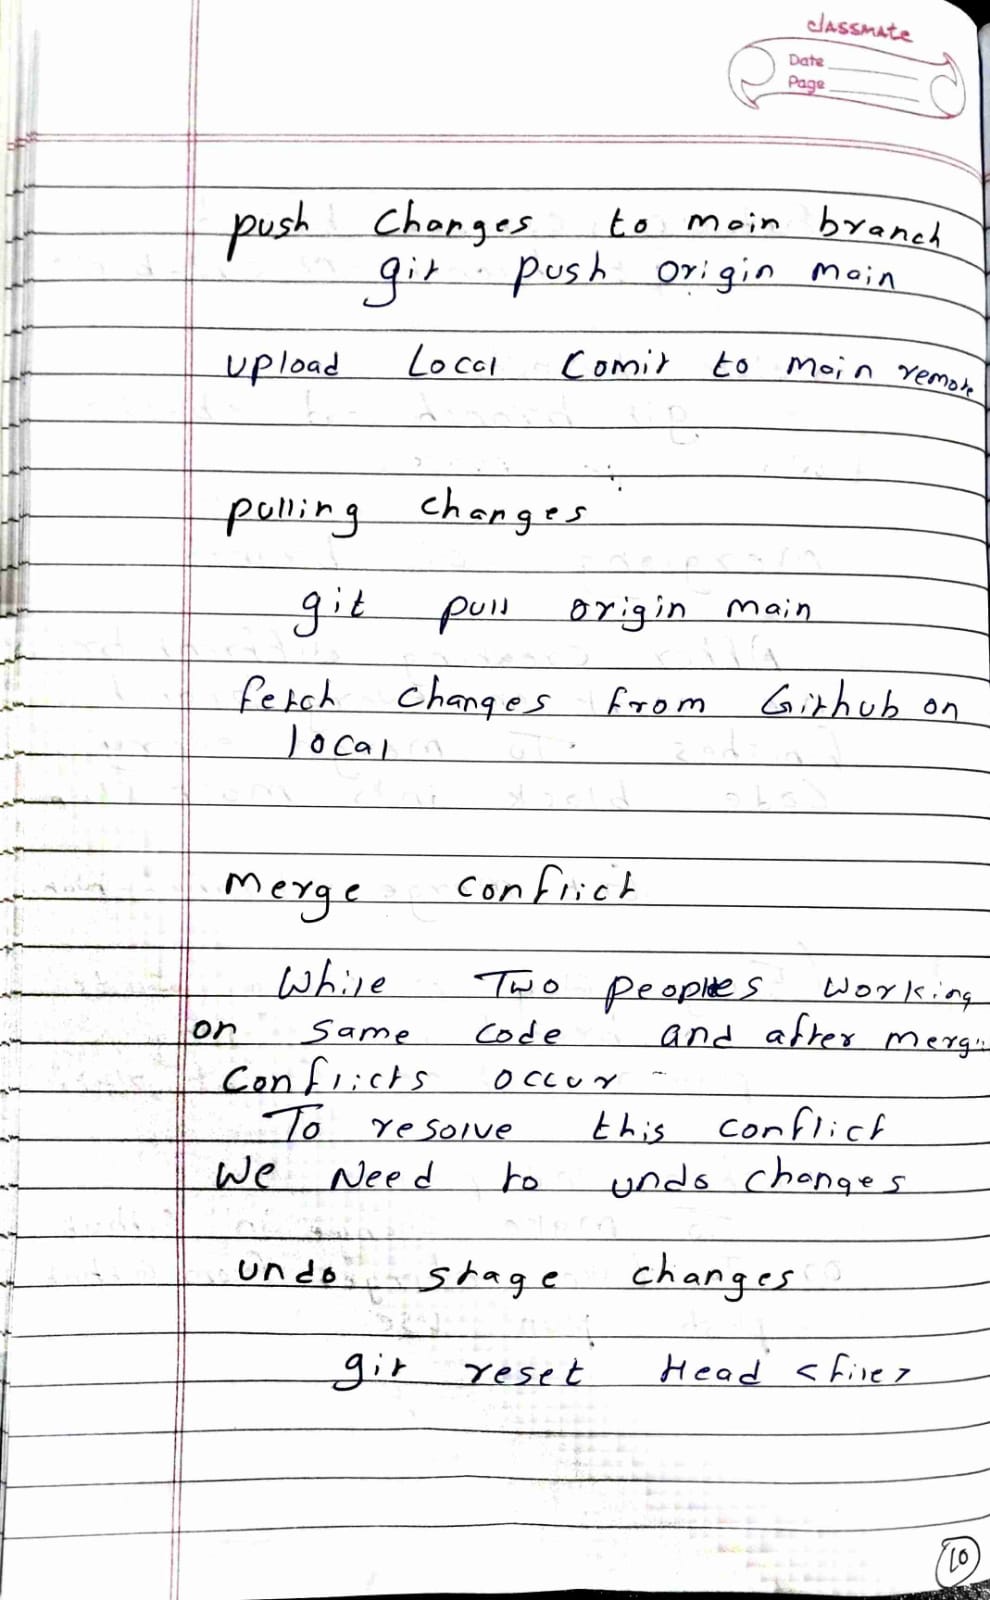 classmate
Date
Page
push changes to main branch
git push origin main
upload Local Comit to main remote
pulling changes
git pull origin main
fetch changes from Github on
local
merge conflict
While Two peoples working
on same code and after merg
conflicts occur
To resolve this conflict
we Need to undo changes
undo stage changes
git reset Head <file>
10